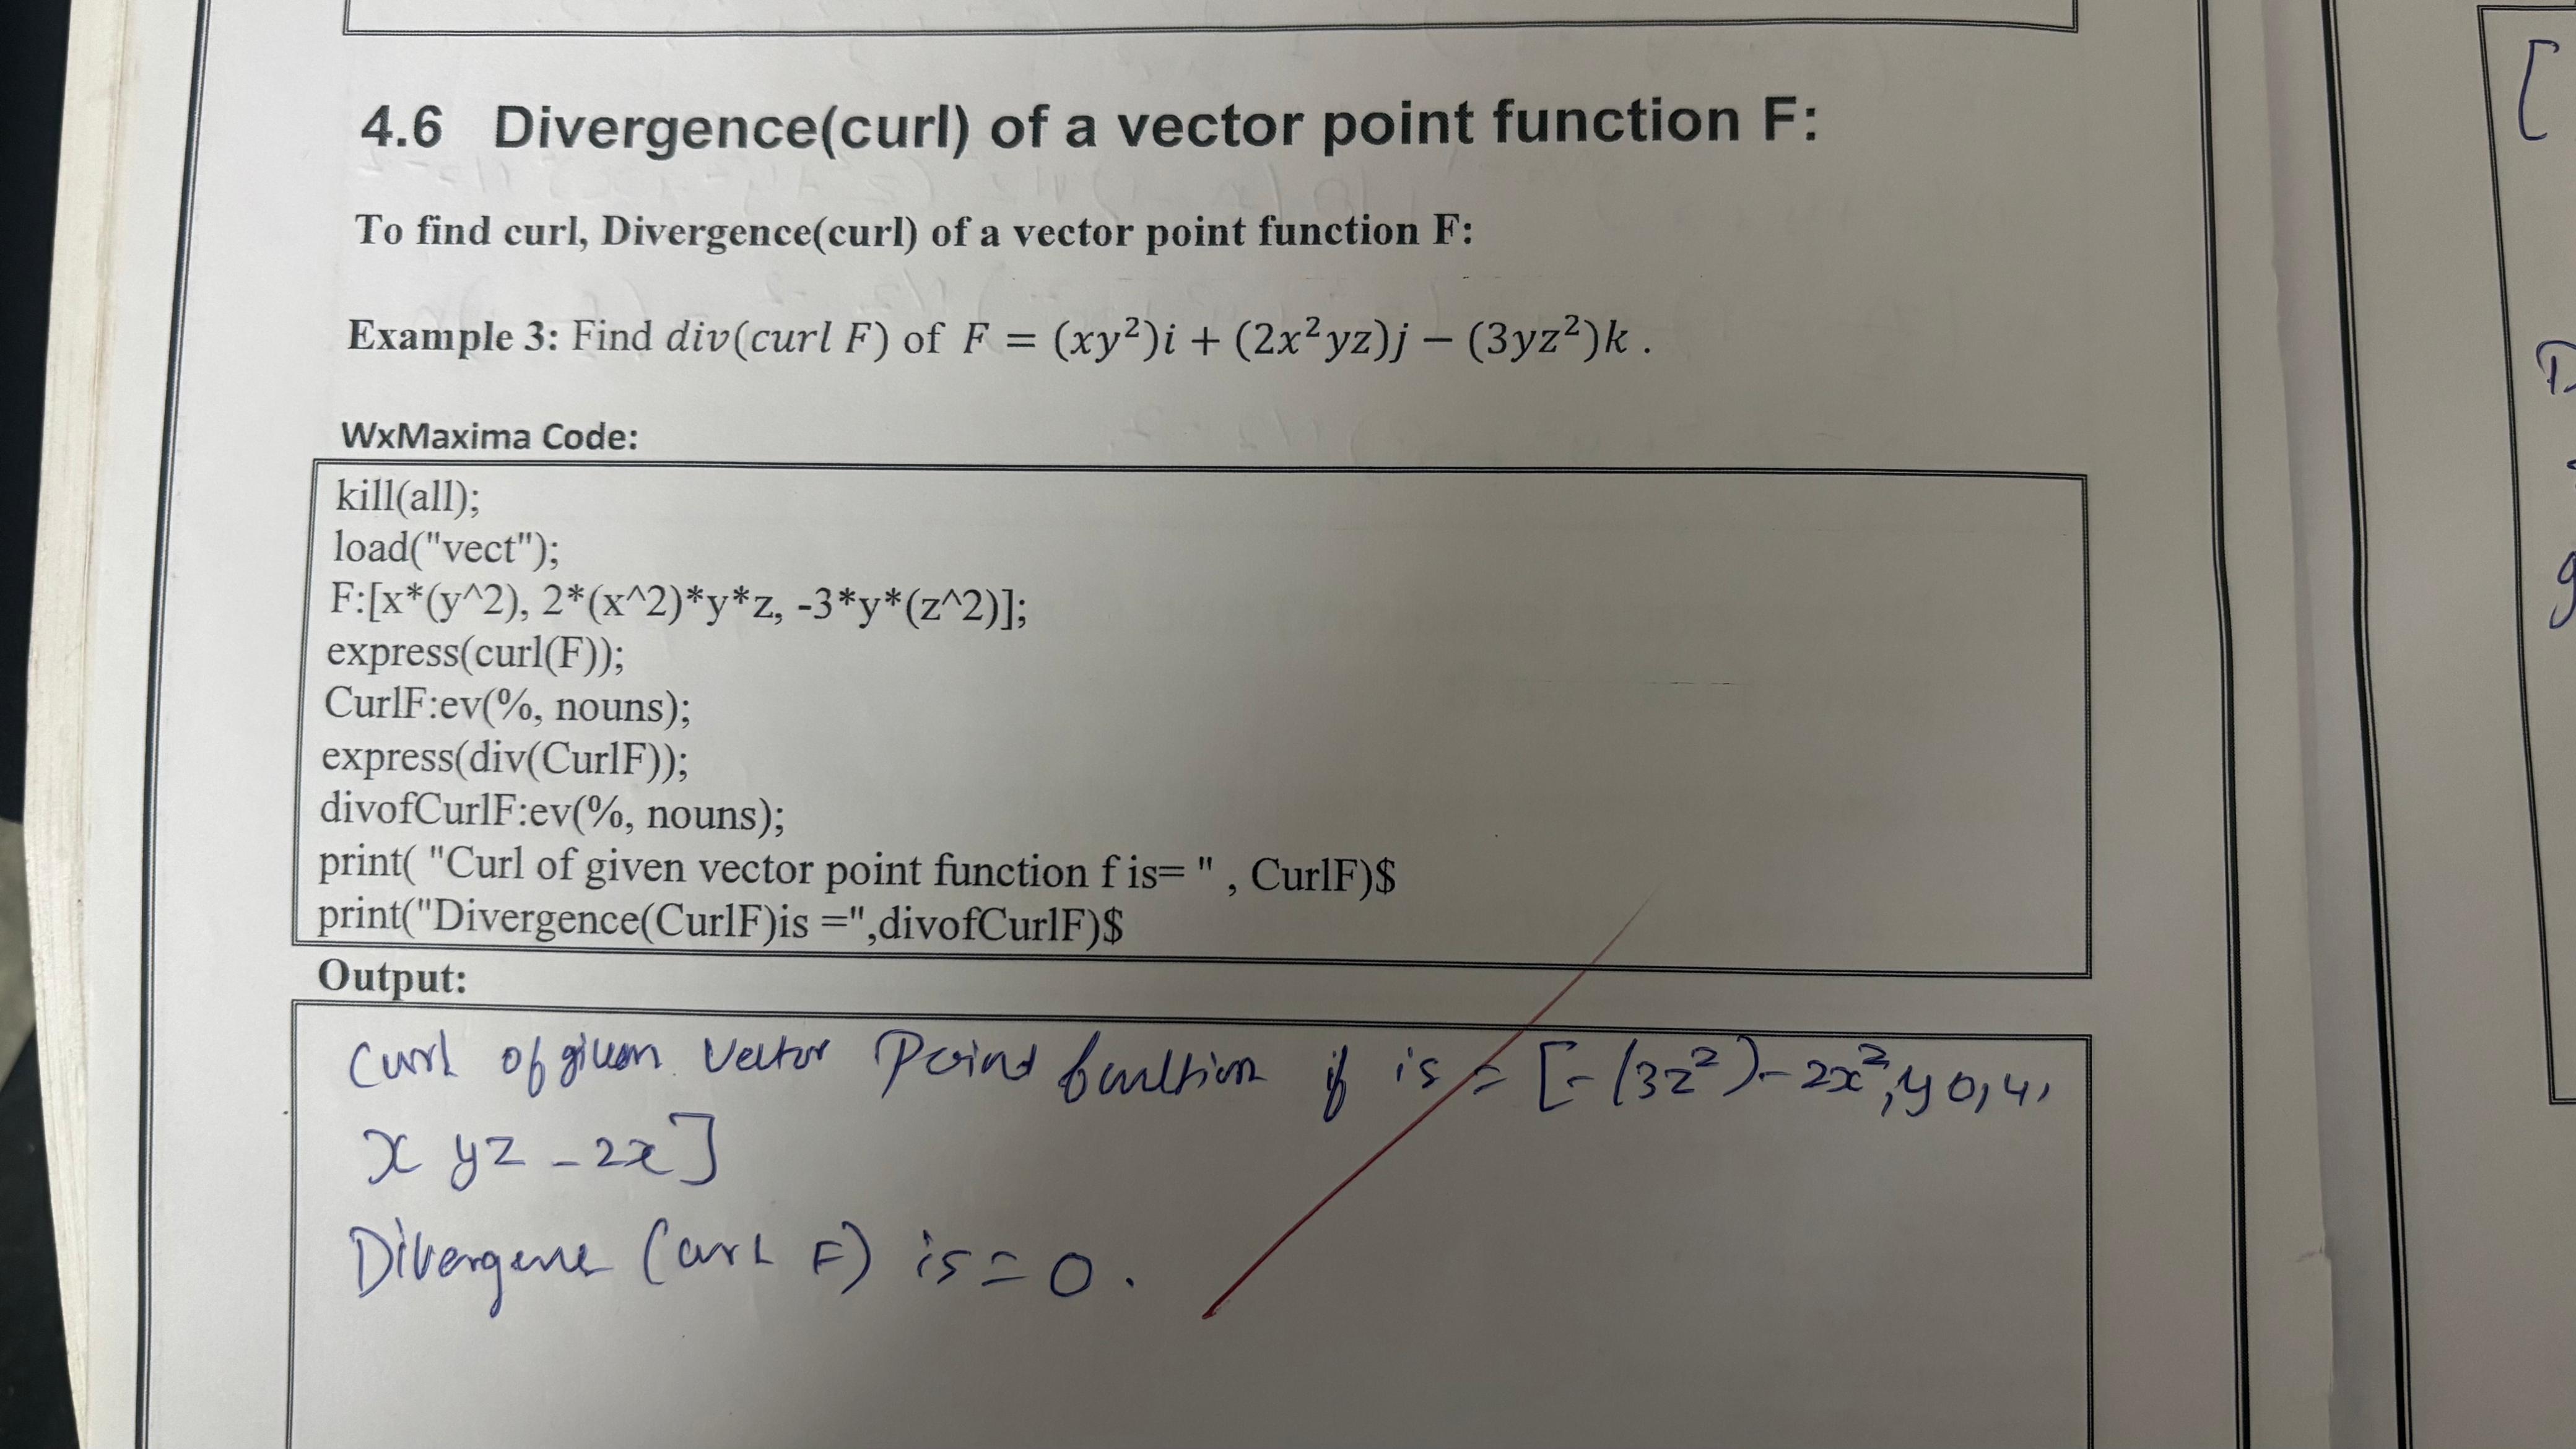 4.6 Divergence(curl) of a vector point function F:
To find curl, Divergence(curl) of a vector point function F:
Example 3: Find div(curl F) of F = (xy²)i + (2x²yz)j − (3yz²)k .
WxMaxima Code:
kill(all);
load("vect");
F:[x*(y^2), 2*(x^2)*y*z, -3*y*(z^2)];
express(curl(F));
CurlF:ev(%, nouns);
express(div(CurlF));
divofCurlF:ev(%, nouns);
print( "Curl of given vector point function f is= " , CurlF)$
print("Divergence(CurlF)is =",divofCurlF)$
Output:
Curl of given Vector Point function if is = [-(3z²)-2x²,y 0,4,
x yz -2x]
Divergene (curl F) is = 0.